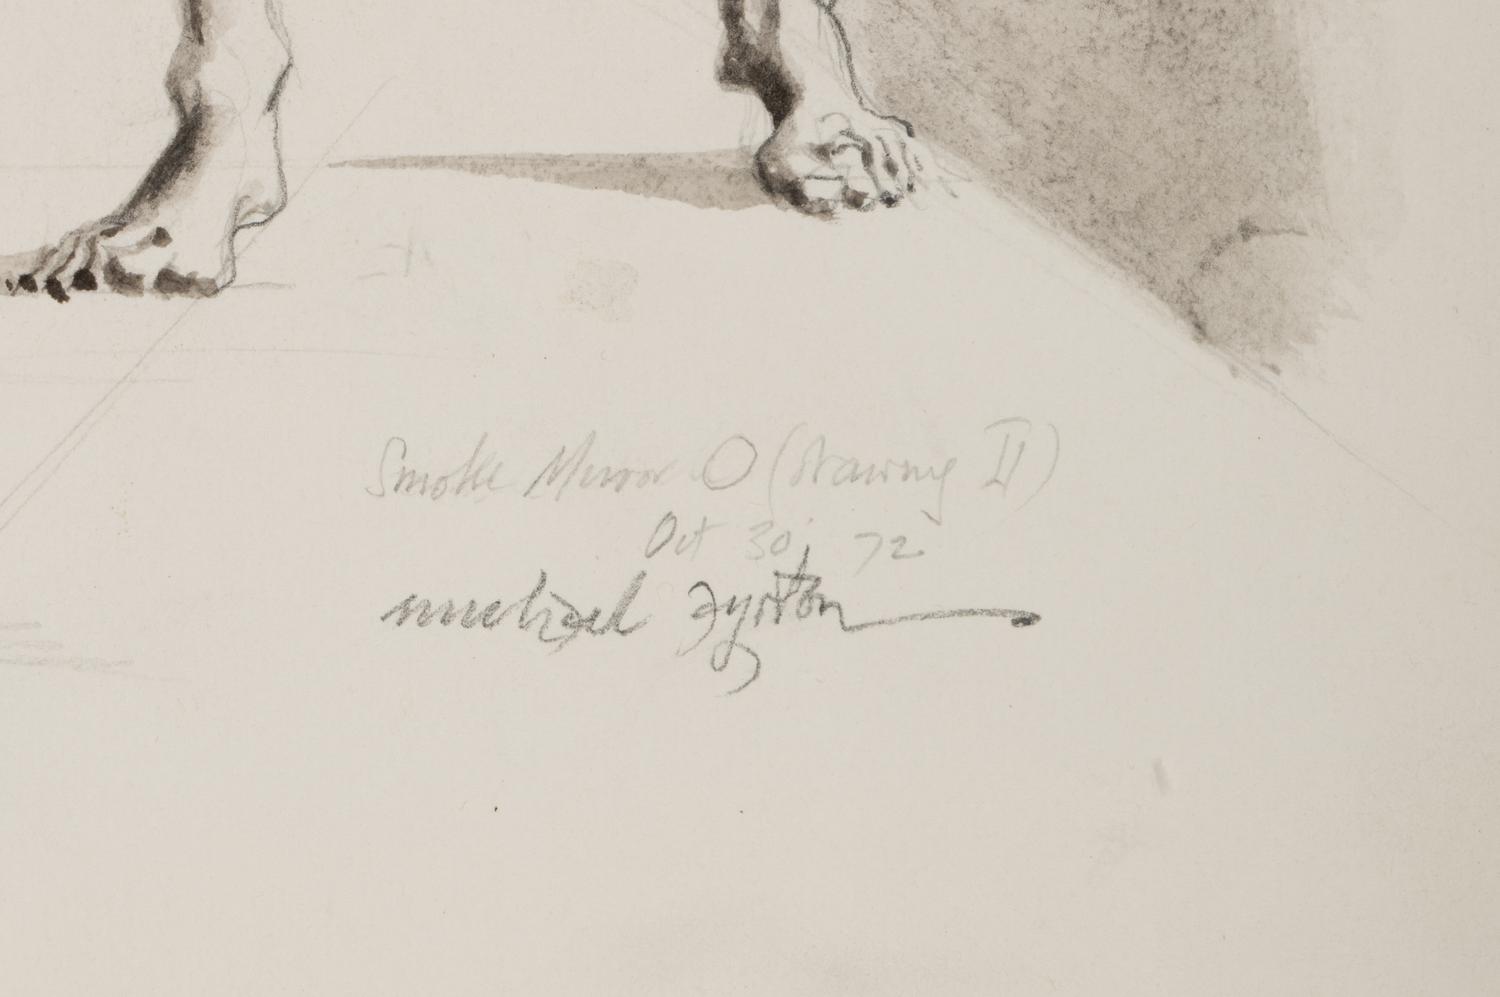 Smoke Mirror O (drawing II)
Oct 30, 72
michael ayrton